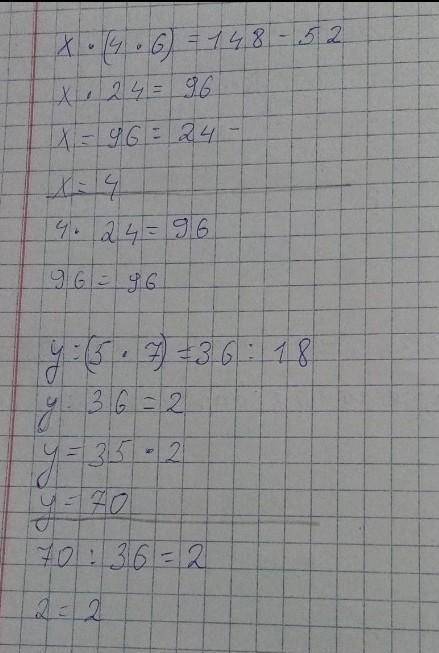 x · (4 · 6) = 148 - 52
x · 24 = 96
x = 96 = 24 -
x = 4
4 · 24 = 96
96 = 96
y : (5 · 7) = 36 : 18
y : 36 = 2
y = 35 · 2
y = 70
70 : 36 = 2
2 = 2